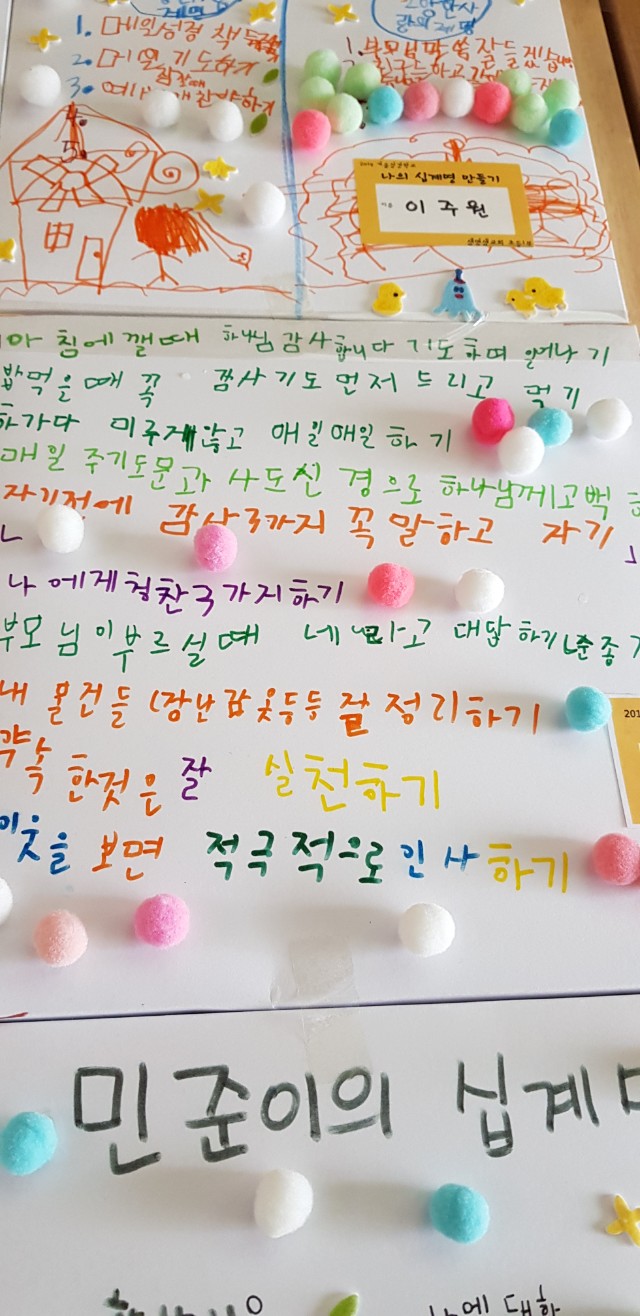 계명
1. 매일성경 책
2. 매일 기도하기
3.
1. 부모님 말씀 잘 듣겠습니다
나의 십계명 만들기
이 주 원
아침에 깰때 하나님 감사합니다 기도하며 일어나기
밥먹을때 꼭 감사기도 먼저 드리고 먹기
하기다 미루지않고 매일매일 하기
매일 주기도문과 사도신경으로 하나님께 고백
자기전에 감사 3가지 꼭 말하고 자기
나에게 칭찬 3가지 하기
부모님이 부르실때 네 라고 대답하기 순종
내 물건들 (장난감 옷등등 잘 정리하기
약속 한것은 잘 실천하기
이웃을 보면 적극적으로 인사하기
201
민준이의 십계